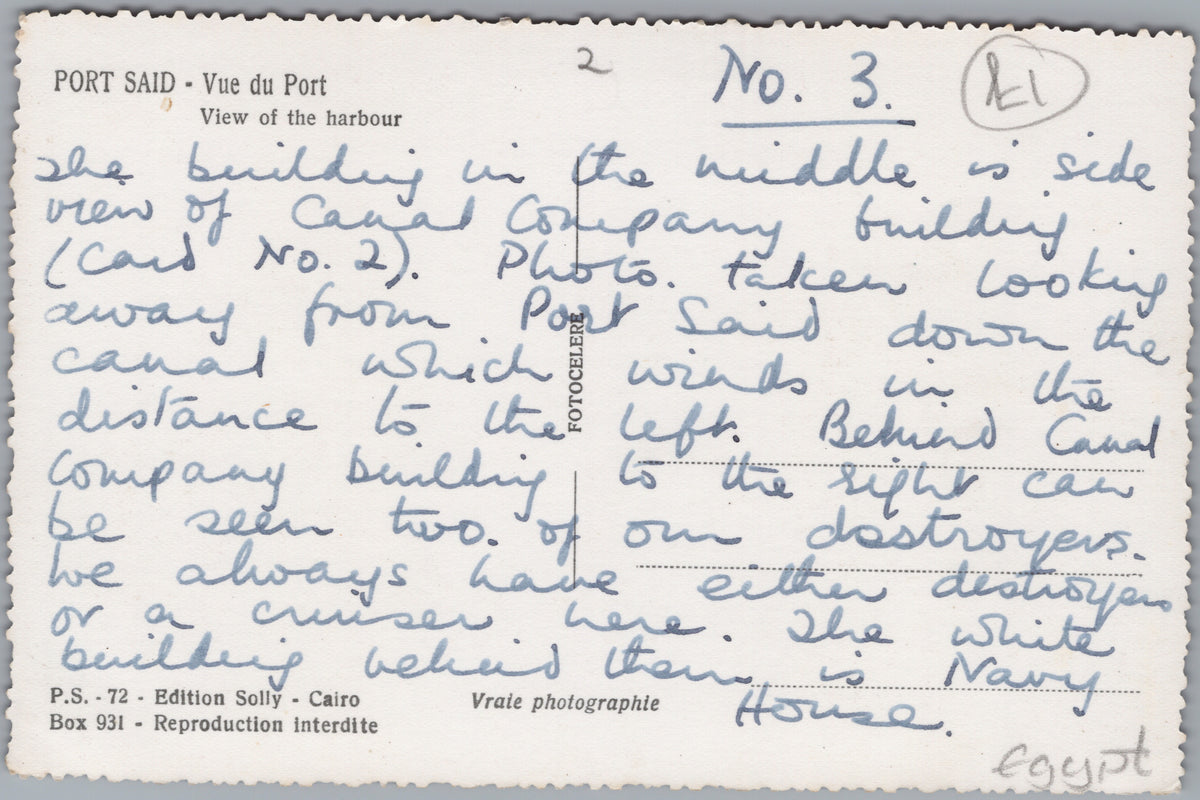 2
No. 3.
LE1
PORT SAID - Vue du Port
View of the harbour
The building in the middle is side
view of Canal Company building
(Card No. 2). Photo. taken looking
away from Port Said down the
canal which winds in the
distance to the left. Behind Canal
Company building to the right can
be seen two. of our destroyers.
We always have either destroyers
or a cruiser here. The white
building behind them is Navy
House.
FOTOCELERE
P.S. - 72 - Edition Solly - Cairo
Box 931 - Reproduction interdite
Vraie photographie
egypt